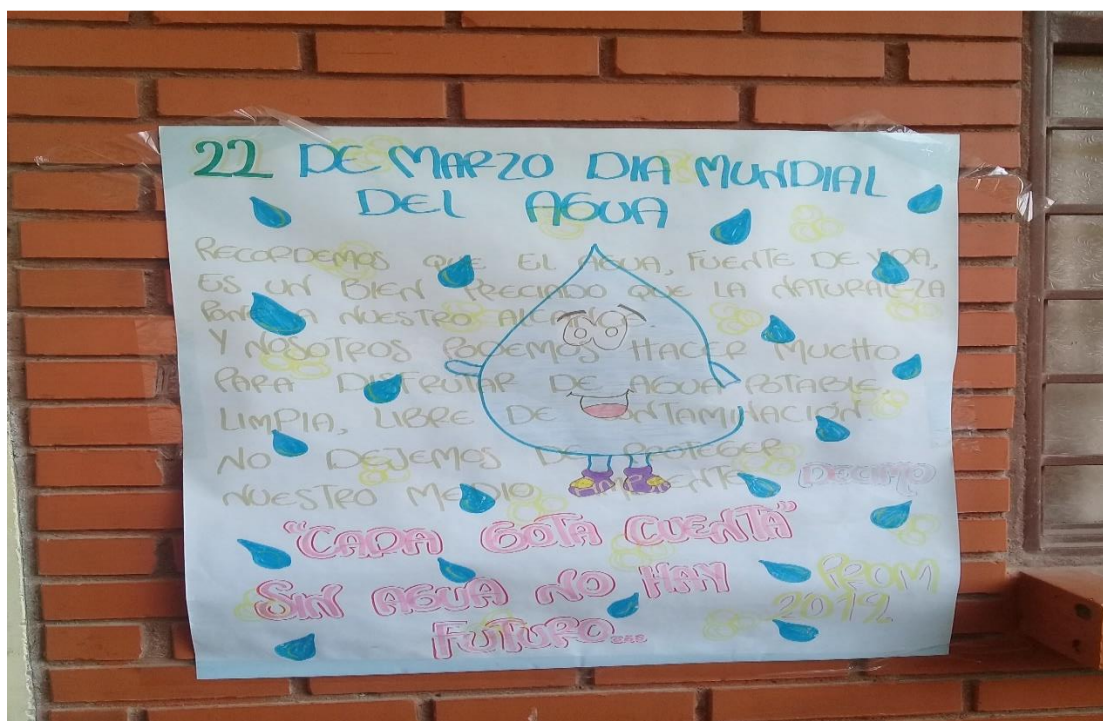 22 DE MARZO DIA MUNDIAL
DEL AGUA
RECORDEMOS QUE EL AGUA, FUENTE DE VIDA,
ES UN BIEN PRECIADO QUE LA NATURALEZA
PONE A NUESTRO ALCANCE
Y NOSOTROS PODEMOS HACER MUCHO
PARA DISFRUTAR DE AGUA POTABLE,
LIMPIA, LIBRE DE CONTAMINACIÓN
NO DEJEMOS DE PROTEGER
NUESTRO MEDIO AMBIENTE
DECIMO
"CADA GOTA CUENTA"
SIN AGUA NO HAY
FUTURO...
PROM
2019